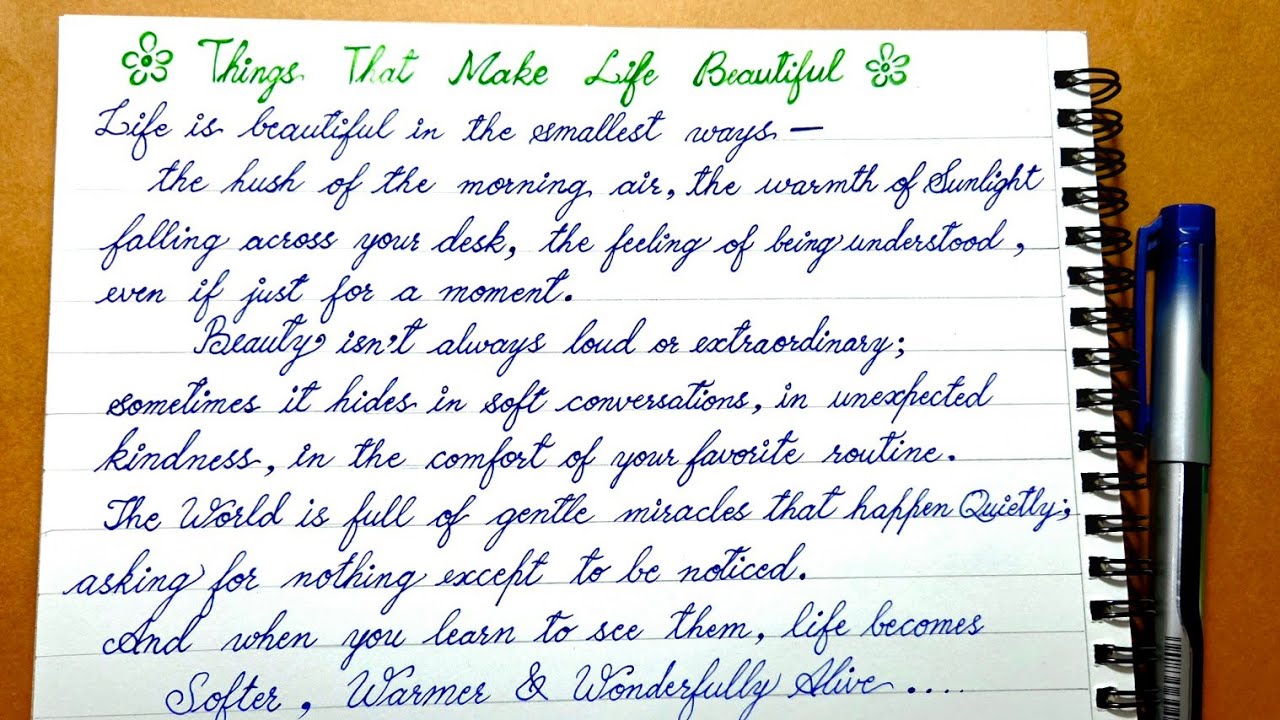 Things That Make Life Beautiful
Life is beautiful in the smallest ways —
the hush of the morning air, the warmth of Sunlight
falling across your desk, the feeling of being understood,
even if just for a moment.
Beauty isn't always loud or extraordinary;
sometimes it hides in soft conversations, in unexpected
kindness, in the comfort of your favorite routine.
The World is full of gentle miracles that happen Quietly;
asking for nothing except to be noticed.
And when you learn to see them, life becomes
Softer, Warmer & Wonderfully Alive....